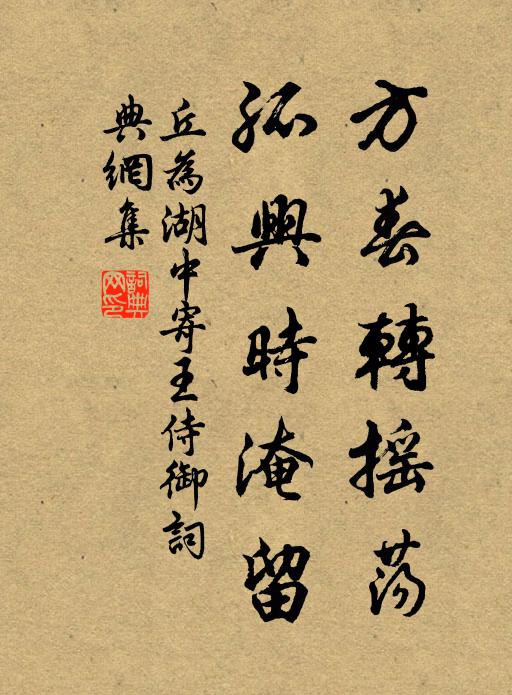 方春轉摇蕩
孤興時淹留
丘為湖中寄王侍御詞
典網集
詞典
网印